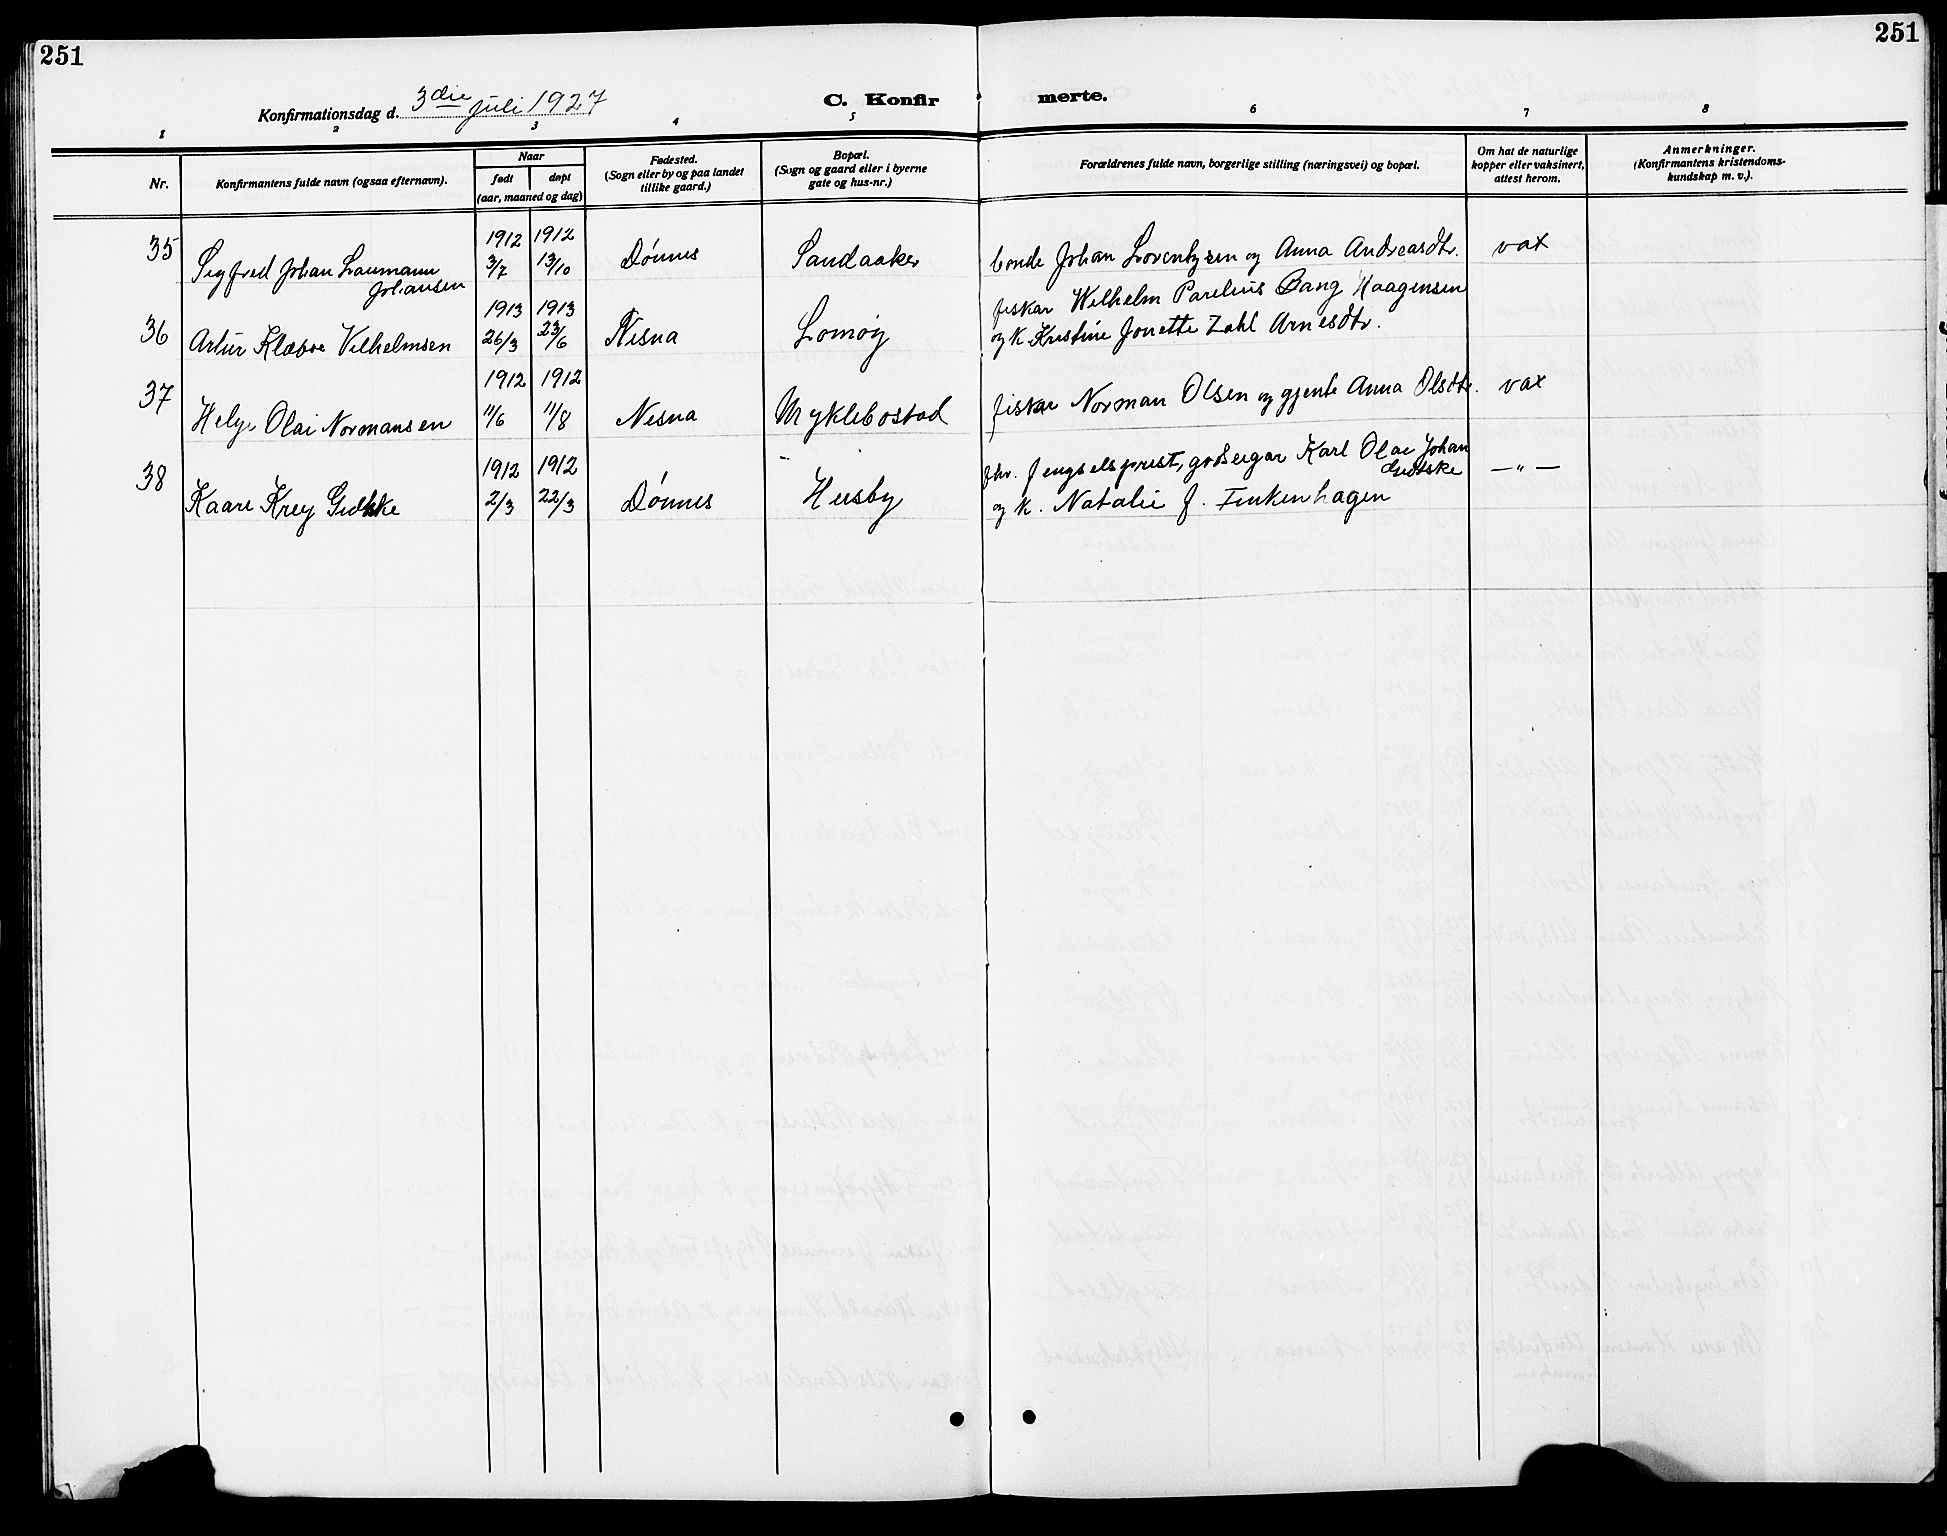 251
251
Konfirmationsdag d. 3die juli 1927
C. Konfir
merte.
1 2 3 4 5 6 7 8
Nr.
Konfirmantens fulde navn (ogsaa efternavn).
Naar
født døpt
(aar, maaned og dag)
Fødested.
(Sogn eller by og paa landet
tillike gaard.)
Bopæl.
(Sogn og gaard eller i byerne
gate og hus-nr.)
Forældrenes fulde navn, borgerlige stilling (næringsvei) og bopæl.
Om hat de naturlige
kopper eller vaksinert,
attest herom.
Anmerkninger.
(Konfirmantens kristendoms-
kundskap m. v.).
35 Sigfred Johan Laumann
Johansen
1912 3/7 1912 13/10 Dønnes Sandaaker bonde Johan Lorentzen og Anna Andreasdtr. vax
36 Artur Klæboe Vilhelmsen 1913 26/3 1913 23/6 Nesna Lomøy fisker Wilhelm Parelius Bang Haagensen
og k. Kristine Jonette Zahl Arnesdtr.
37 Helge Olai Normansen 1912 11/6 1912 11/8 Nesna Myklebostad fisker Norman Olsen og gjente Anna Olsdtr. vax
38 Kaare Krey Gidske 1912 2/3 1912 22/3 Dønnes Husby fhv. fengselsprest, godseigar Karl Olai Johan
Gidske — " —
og k. Natalie f. Finkenhagen